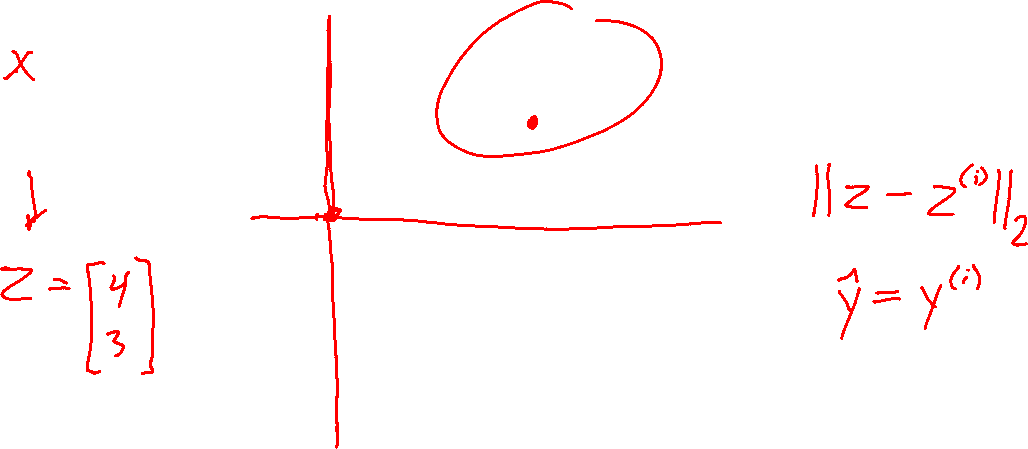 x
z = [4
3]
||z - z^(i)||_2
ŷ = y^(i)